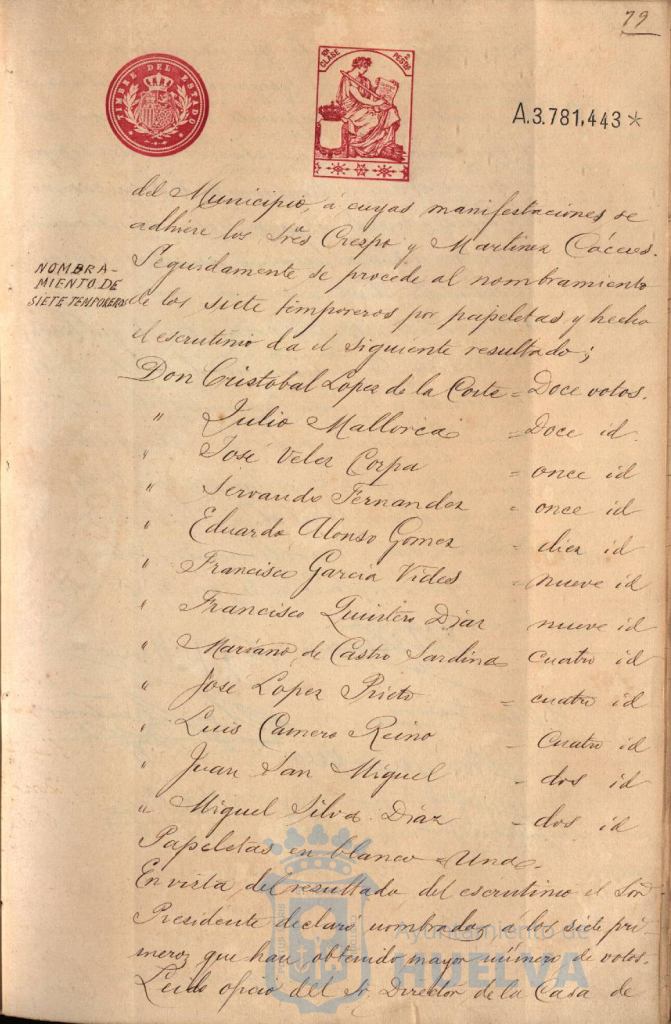 79
TIMBRE DEL ESTADO
CLASE
PESETA
A.3.781,443*
del Municipio, á cuyas manifestaciones se
adhiere los Sres Crespo y Martinez Cáceres.
NOMBRA-
MIENTO DE
SIETE TENPOREROS
Seguidamente se procede al nombramiento
de los siete temporeros por papeletas y hecho
el escrutinio da el siguiente resultado;
Don Cristobal Lopez de la Corte = Doce votos.
" Julio Mallorca = Doce id
" José Velez Corpa = once id
" Servando Fernandez = once id
" Eduardo Alonso Gomez = diez id
" Francisco García Vides = nueve id
" Francisco Quintero Díaz nueve id
" Mariano de Castro Sardina cuatro id
" José Lopez Prieto = cuatro id
" Luis Camero Reino = Cuatro id
" Juan San Miguel = dos id
" Miguel Silva Díaz = dos id
Papeletas en blanco = Una.
En vista del resultado del escrutinio el Sor
Presidente declaró nombrados á los siete pri-
meros que han obtenido mayor número de votos.
Leido oficio del Sr. Director de la Casa de
Ayuntamiento de
HUELVA